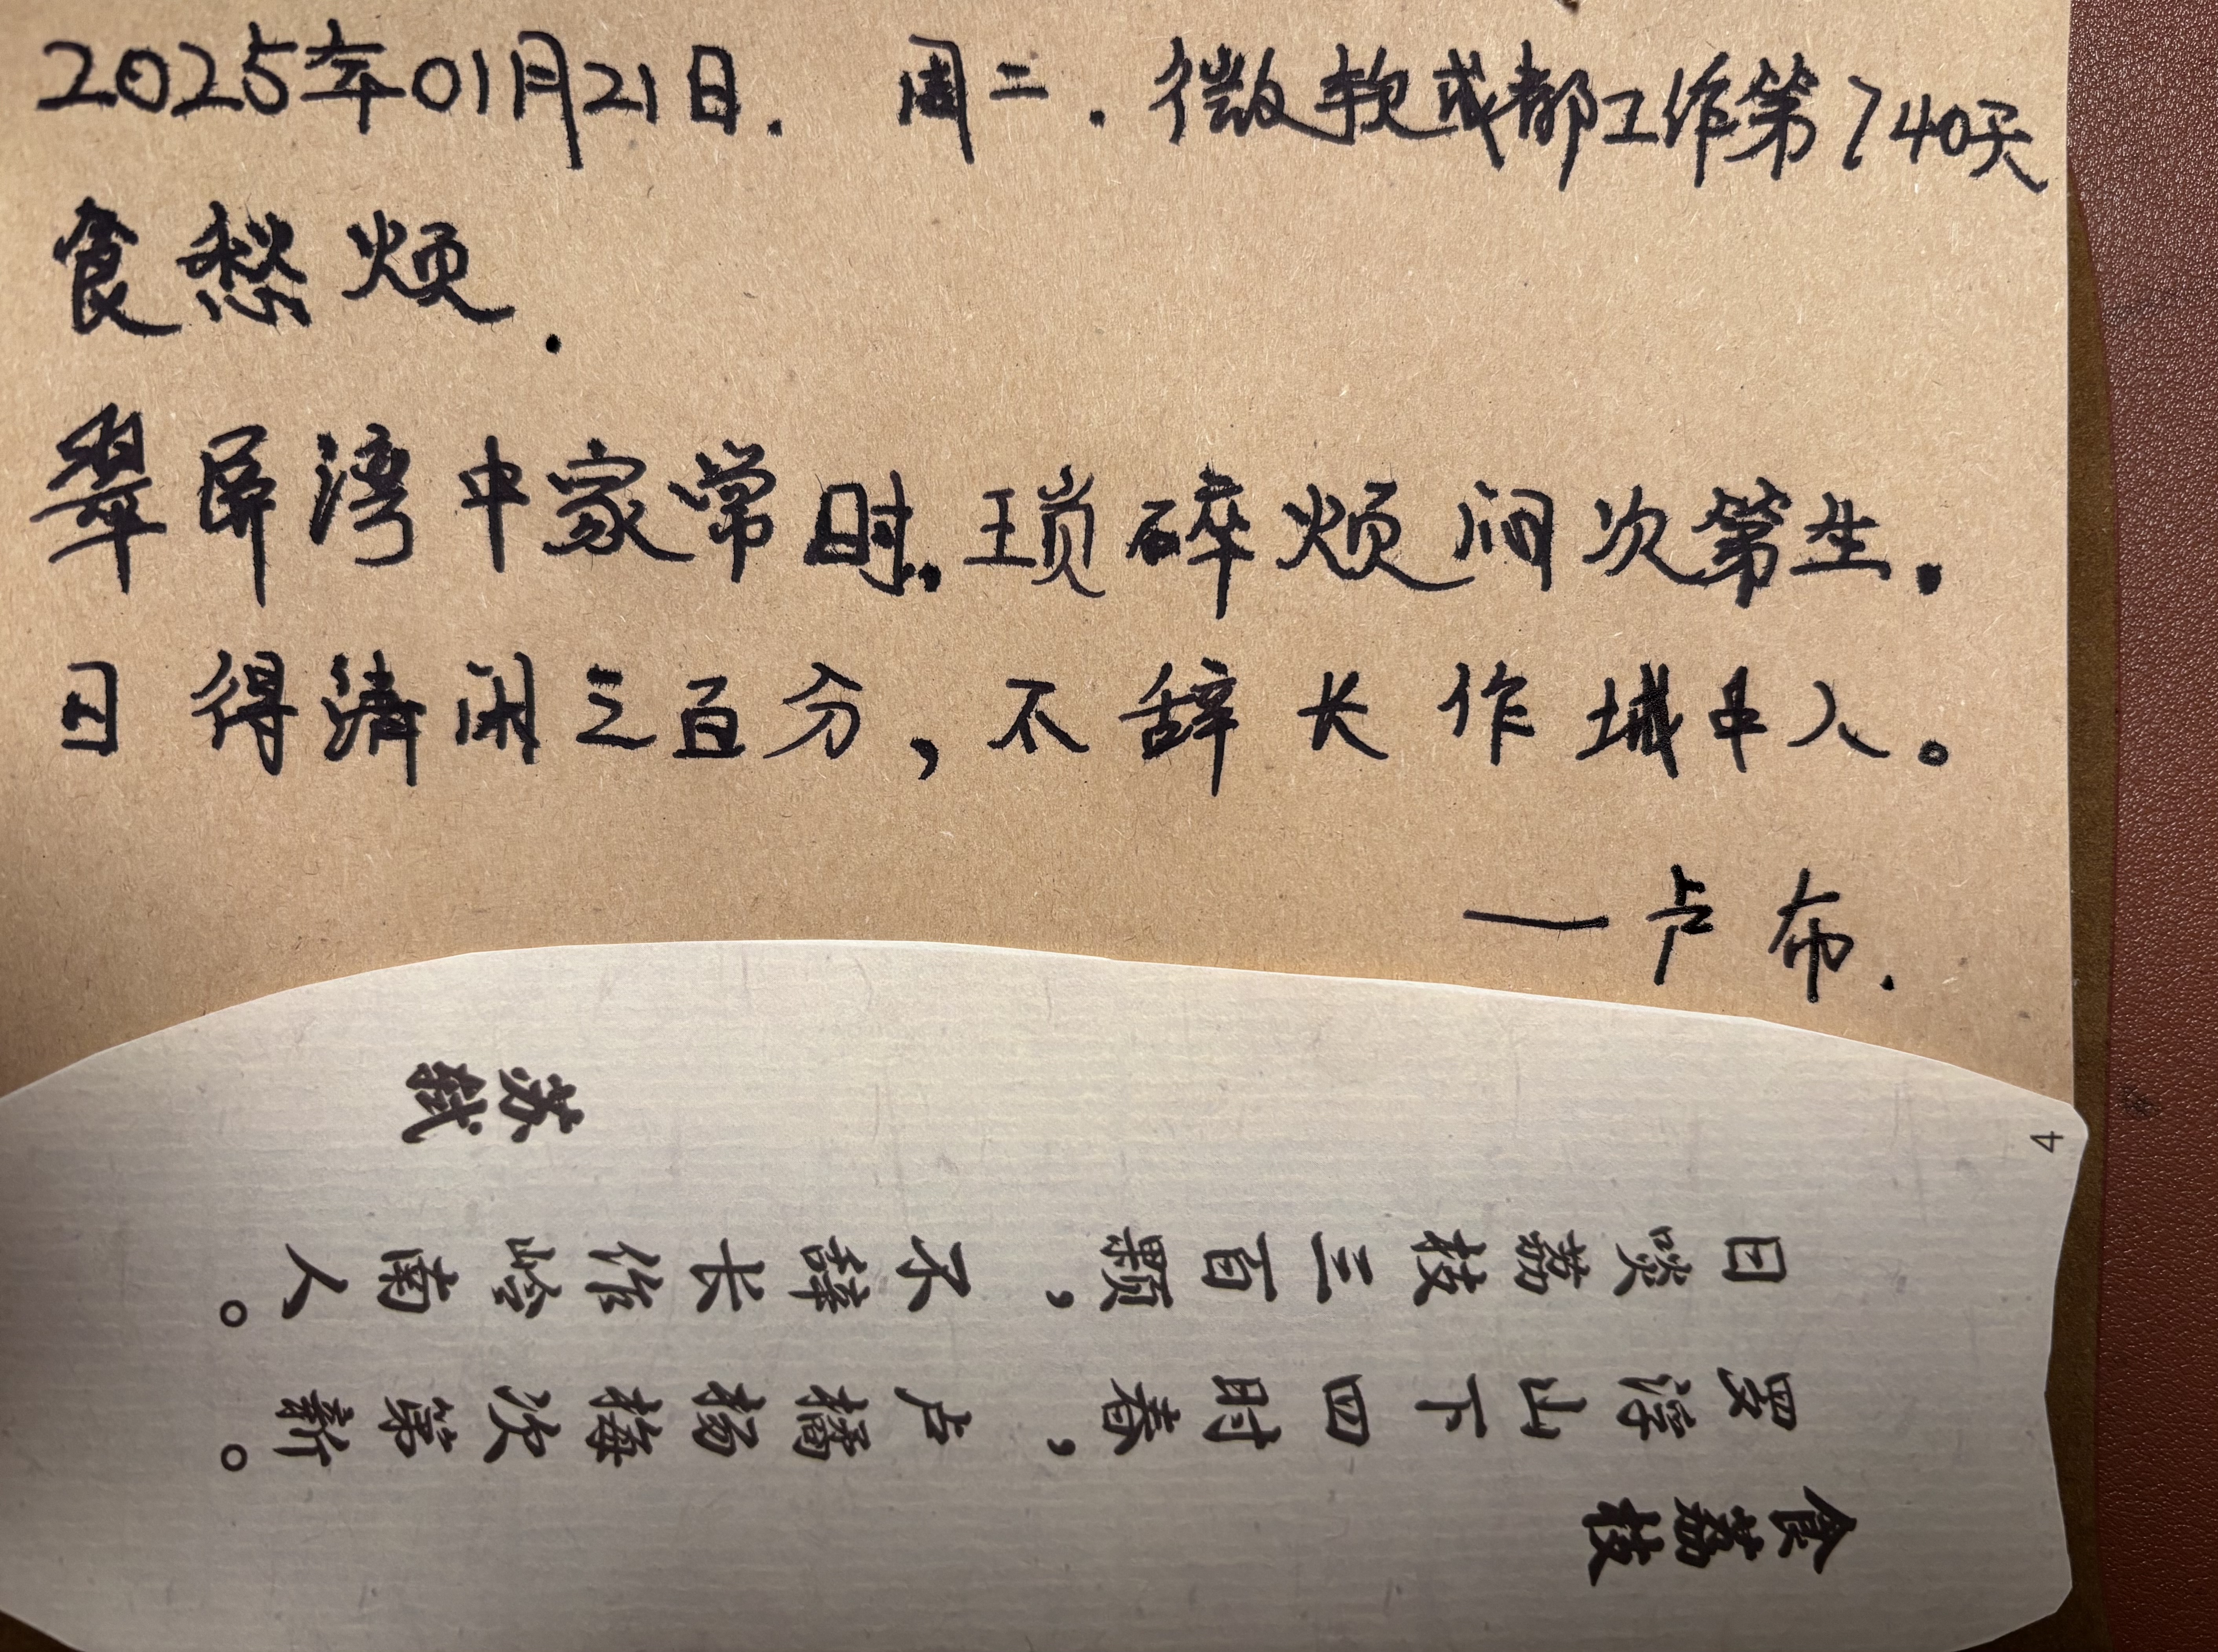 2025年01月21日. 周二. 微软成都工作第740天
食愁烦.
翠屏湾中家常时,琐碎烦闷次第生.
日得清闲三百分,不辞长作城中人。
——卢布.
食荔枝
罗浮山下四时春,卢橘杨梅次第新。
日啖荔枝三百颗,不辞长作岭南人。
苏轼
4